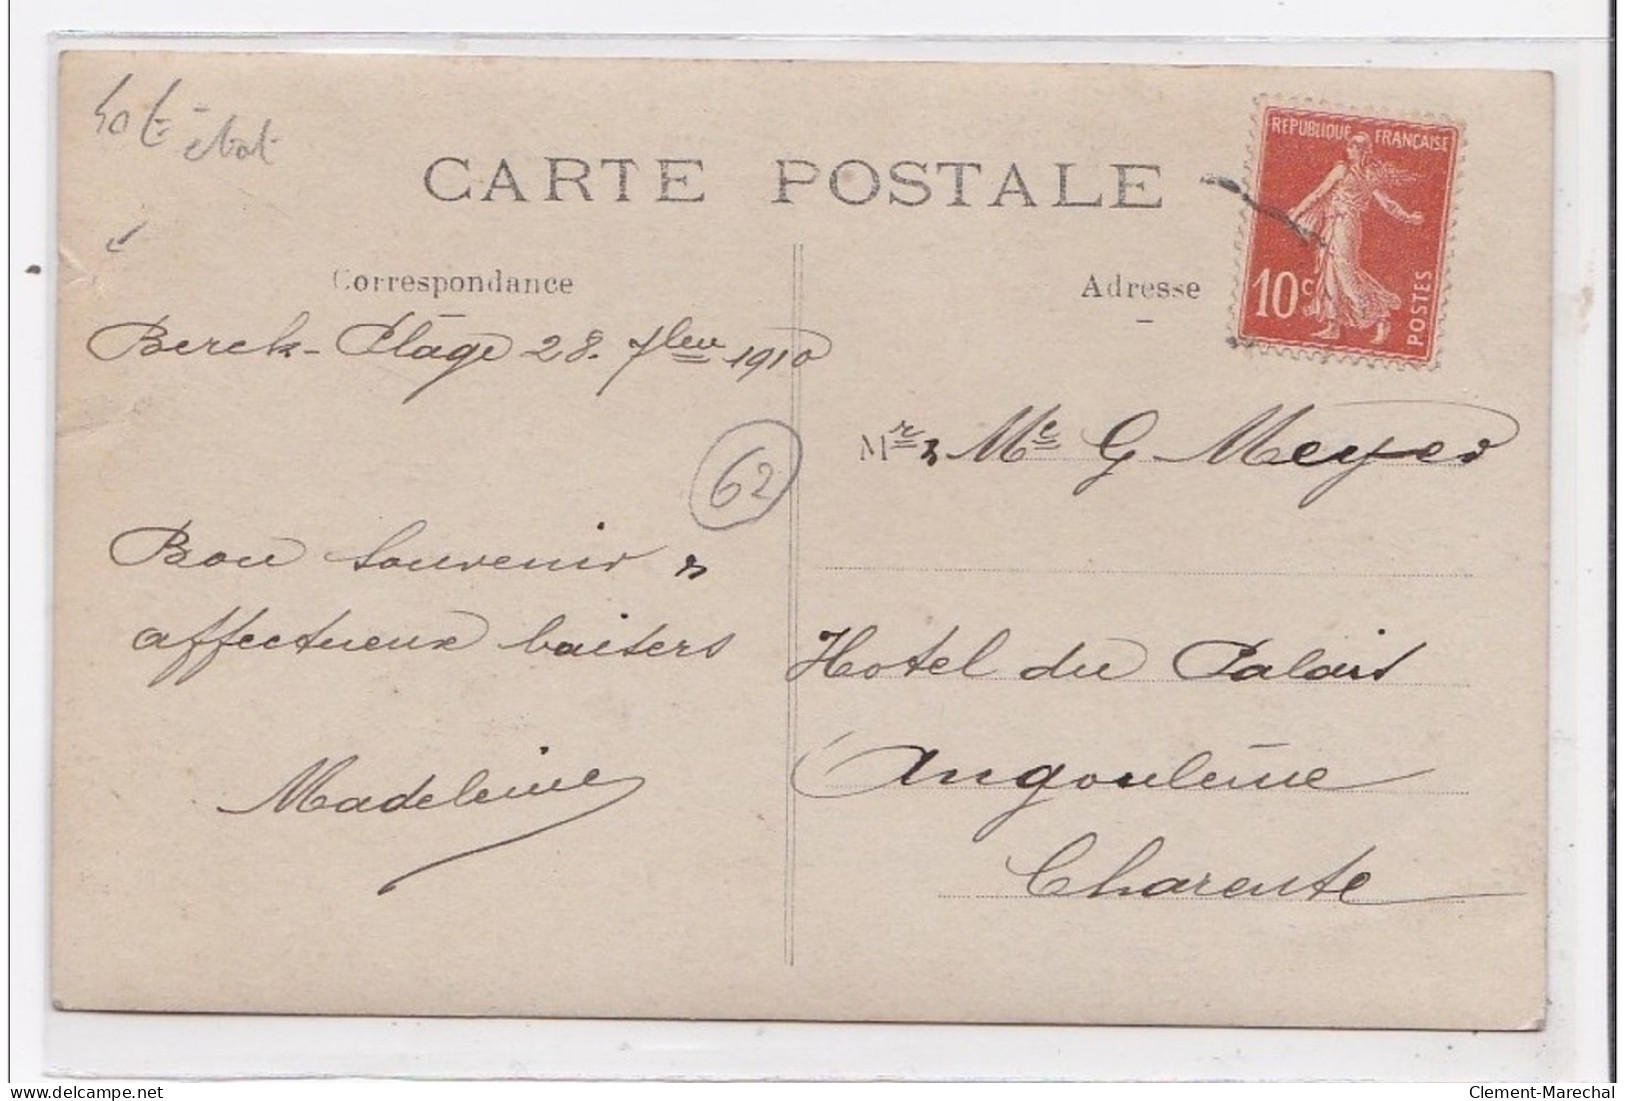 état
CARTE POSTALE
REPUBLIQUE FRANÇAISE
10c
POSTES
Correspondance
Adresse
Berck-Plage 28. 7bre 1910
Mr & Me G Meyer
62
Bon souvenir &
affectueux baisers
Hotel du Palais
Madeleine
Angoulême
Charente
Clement-Marechal